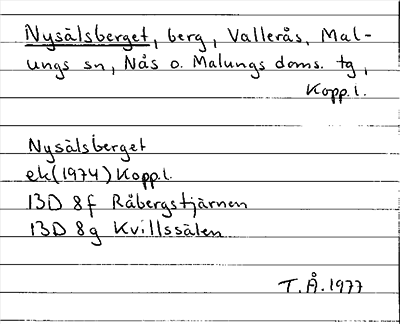 Nysälsberget, berg, Vallerås, Mal-
ungs sn, Nås o. Malungs doms. tg,
Kopp.l.
Nysälsberget
ek(1974) Kopp.l.
13D 8f Råbergstjärnen
13D 8g Kvillssälen
T.Å.1977